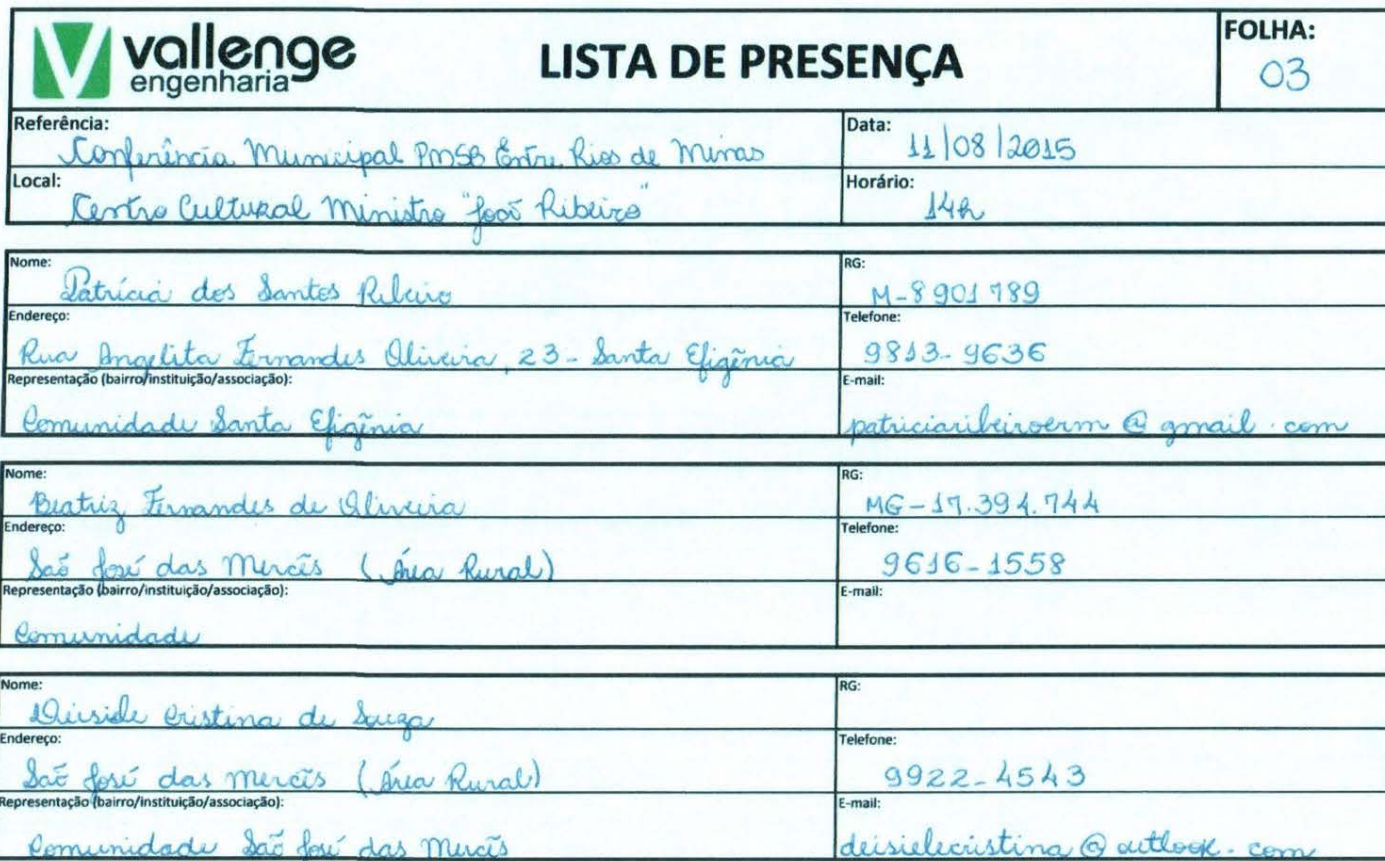 vallenge
engenharia
LISTA DE PRESENÇA
FOLHA:
03
Referência:
Conferência Municipal PMSB Entre Rios de Minas
Data:
11/08/2015
Local:
Centro Cultural Ministro "João Ribeiro"
Horário:
14h
Nome:
Patrícia dos Santos Ribeiro
RG:
M-8901789
Endereço:
Rua Angelita Fernandes Oliveira, 23 - Santa Efigênia
Telefone:
9813-9636
Representação (bairro/instituição/associação):
Comunidade Santa Efigênia
E-mail:
patriciaribeiroerm@gmail.com
Nome:
Beatriz Fernandes de Oliveira
RG:
MG-17.394.744
Endereço:
São José das Mercês (Área Rural)
Telefone:
9616-1558
Representação (bairro/instituição/associação):
Comunidade
E-mail:
Nome:
Cristina de Souza
RG:
Endereço:
São José das Mercês (Área Rural)
Telefone:
9922-4543
Representação (bairro/instituição/associação):
Comunidade São José das Mercês
E-mail:
deisielecristina@outlook.com